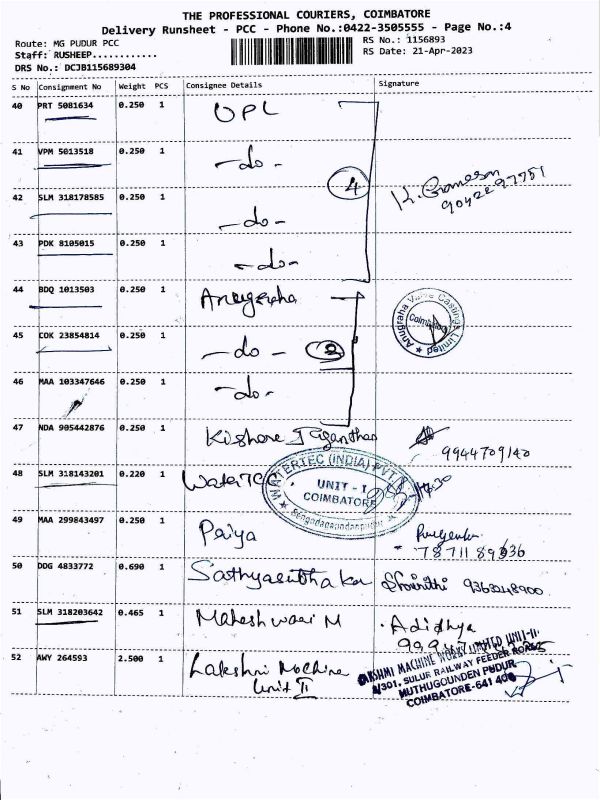 THE PROFESSIONAL COURIERS, COIMBATORE
Delivery Runsheet - PCC - Phone No.:0422-3505555 - Page No.:4
Route: MG PUDUR PCC
RS No.: 1156893
Staff: RUSHEEP............
RS Date: 21-Apr-2023
DRS No.: DCJB115689304
S No Consignment No Weight PCS Consignee Details Signature
40 PRT 5081634 0.250 1 UPL
41 VPM 5013518 0.250 1 -do-
4
42 SLM 318178585 0.250 1 -do-
9042297751
43 PDK 8105015 0.250 1 -do-
44 BDQ 1013503 0.250 1 Anugraha
Anugraha Valve Castings Limited
Coimbatore
45 COK 23854814 0.250 1 -do-
46 MAA 103347646 0.250 1 -do-
47 NDA 905442876 0.250 1 Kishore Jaganthan
9944709140
48 SLM 318143201 0.220 1 Watertec
WATERTEC (INDIA) PVT
UNIT - I
COIMBATORE
49 MAA 299843497 0.250 1 Paiya
7871189636
50 DDG 4833772 0.690 1 Sathyasudhakar
9363048900
51 SLM 318203642 0.465 1 Maheshwari M
Adidhya
52 AWY 264593 2.500 1 Lakshmi Machine
Unit II
LAKSHMI MACHINE WORKS LIMITED UNIT-II
SULUR RAILWAY FEEDER ROAD
MUTHUGOUNDEN PUDUR
COIMBATORE-641 406